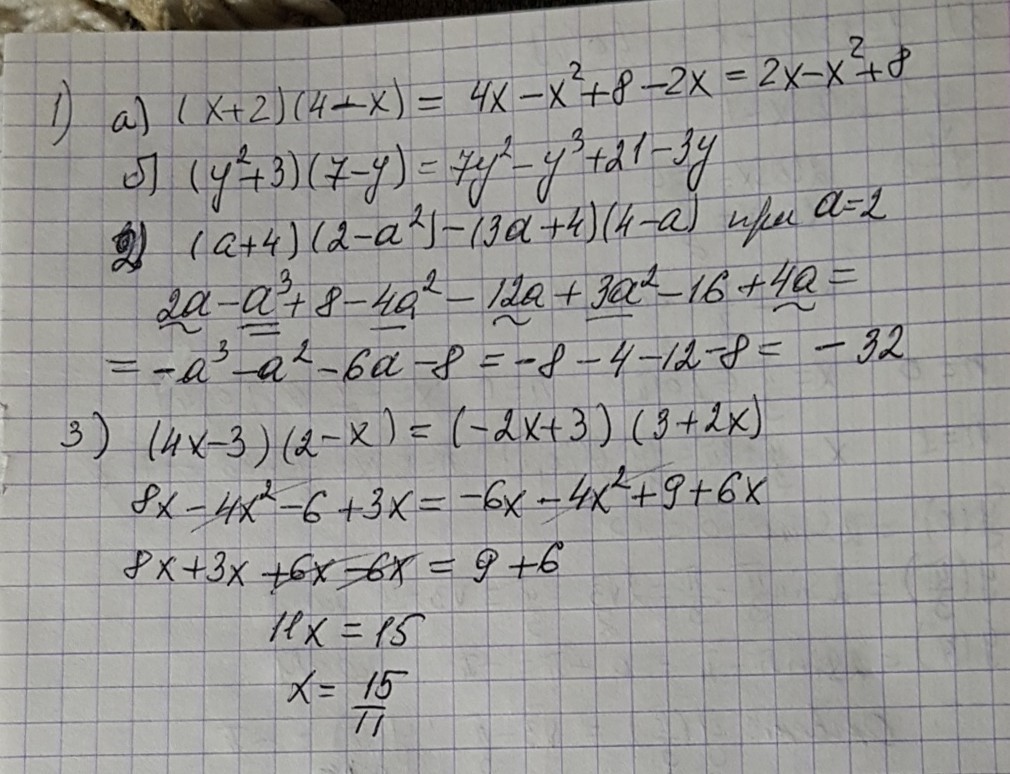 1) а) (x+2)(4-x) = 4x-x²+8-2x = 2x-x²+8
б) (y²+3)(7-y) = 7y²-y³+21-3y
2) (a+4)(2-a²)-(3a+4)(4-a) при a=2
2a-a³+8-4a²-12a+3a²-16+4a=
= -a³-a²-6a-8 = -8-4-12-8 = -32
3) (4x-3)(2-x) = (-2x+3)(3+2x)
8x-4x²-6+3x = -6x-4x²+9+6x
8x+3x+6x-6x = 9+6
11x = 15
x = 15/11